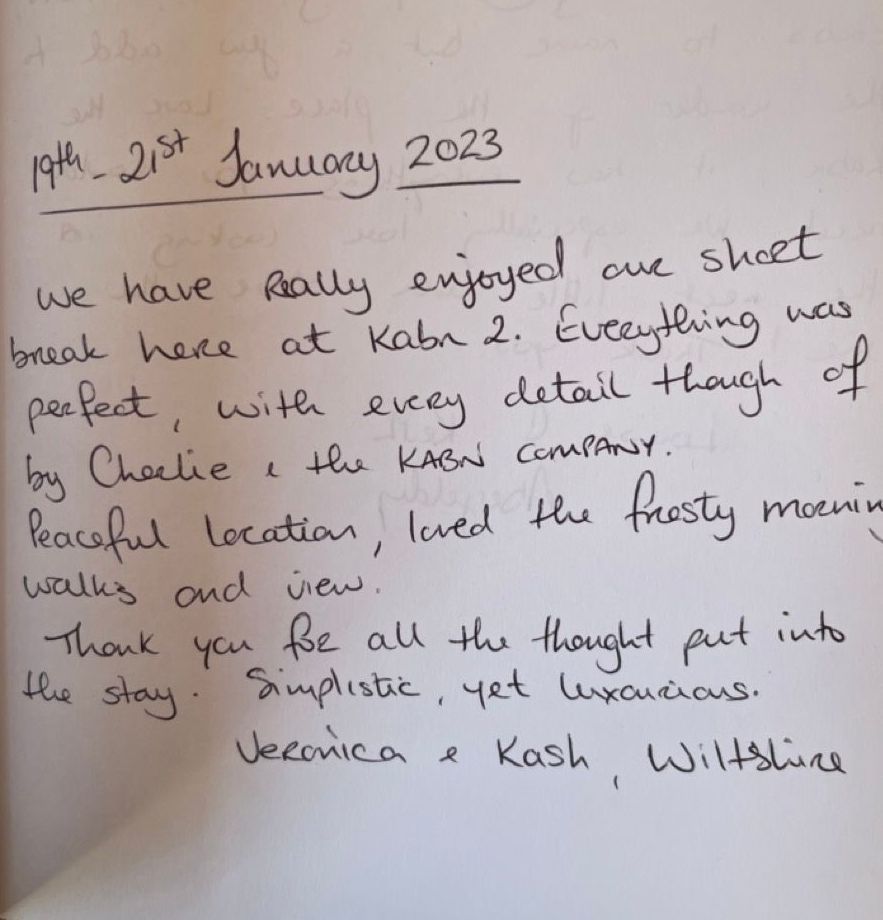 19th - 21st January 2023
We have Really enjoyed our short
break here at Kabn 2. Everything was
perfect, with every detail though of
by Charlie & the KABN COMPANY.
Peaceful location, loved the frosty mornin
walks and view.
Thank you for all the thought put into
the stay. Simplistic, yet luxourious.
Veronica & Kash, Wiltshire